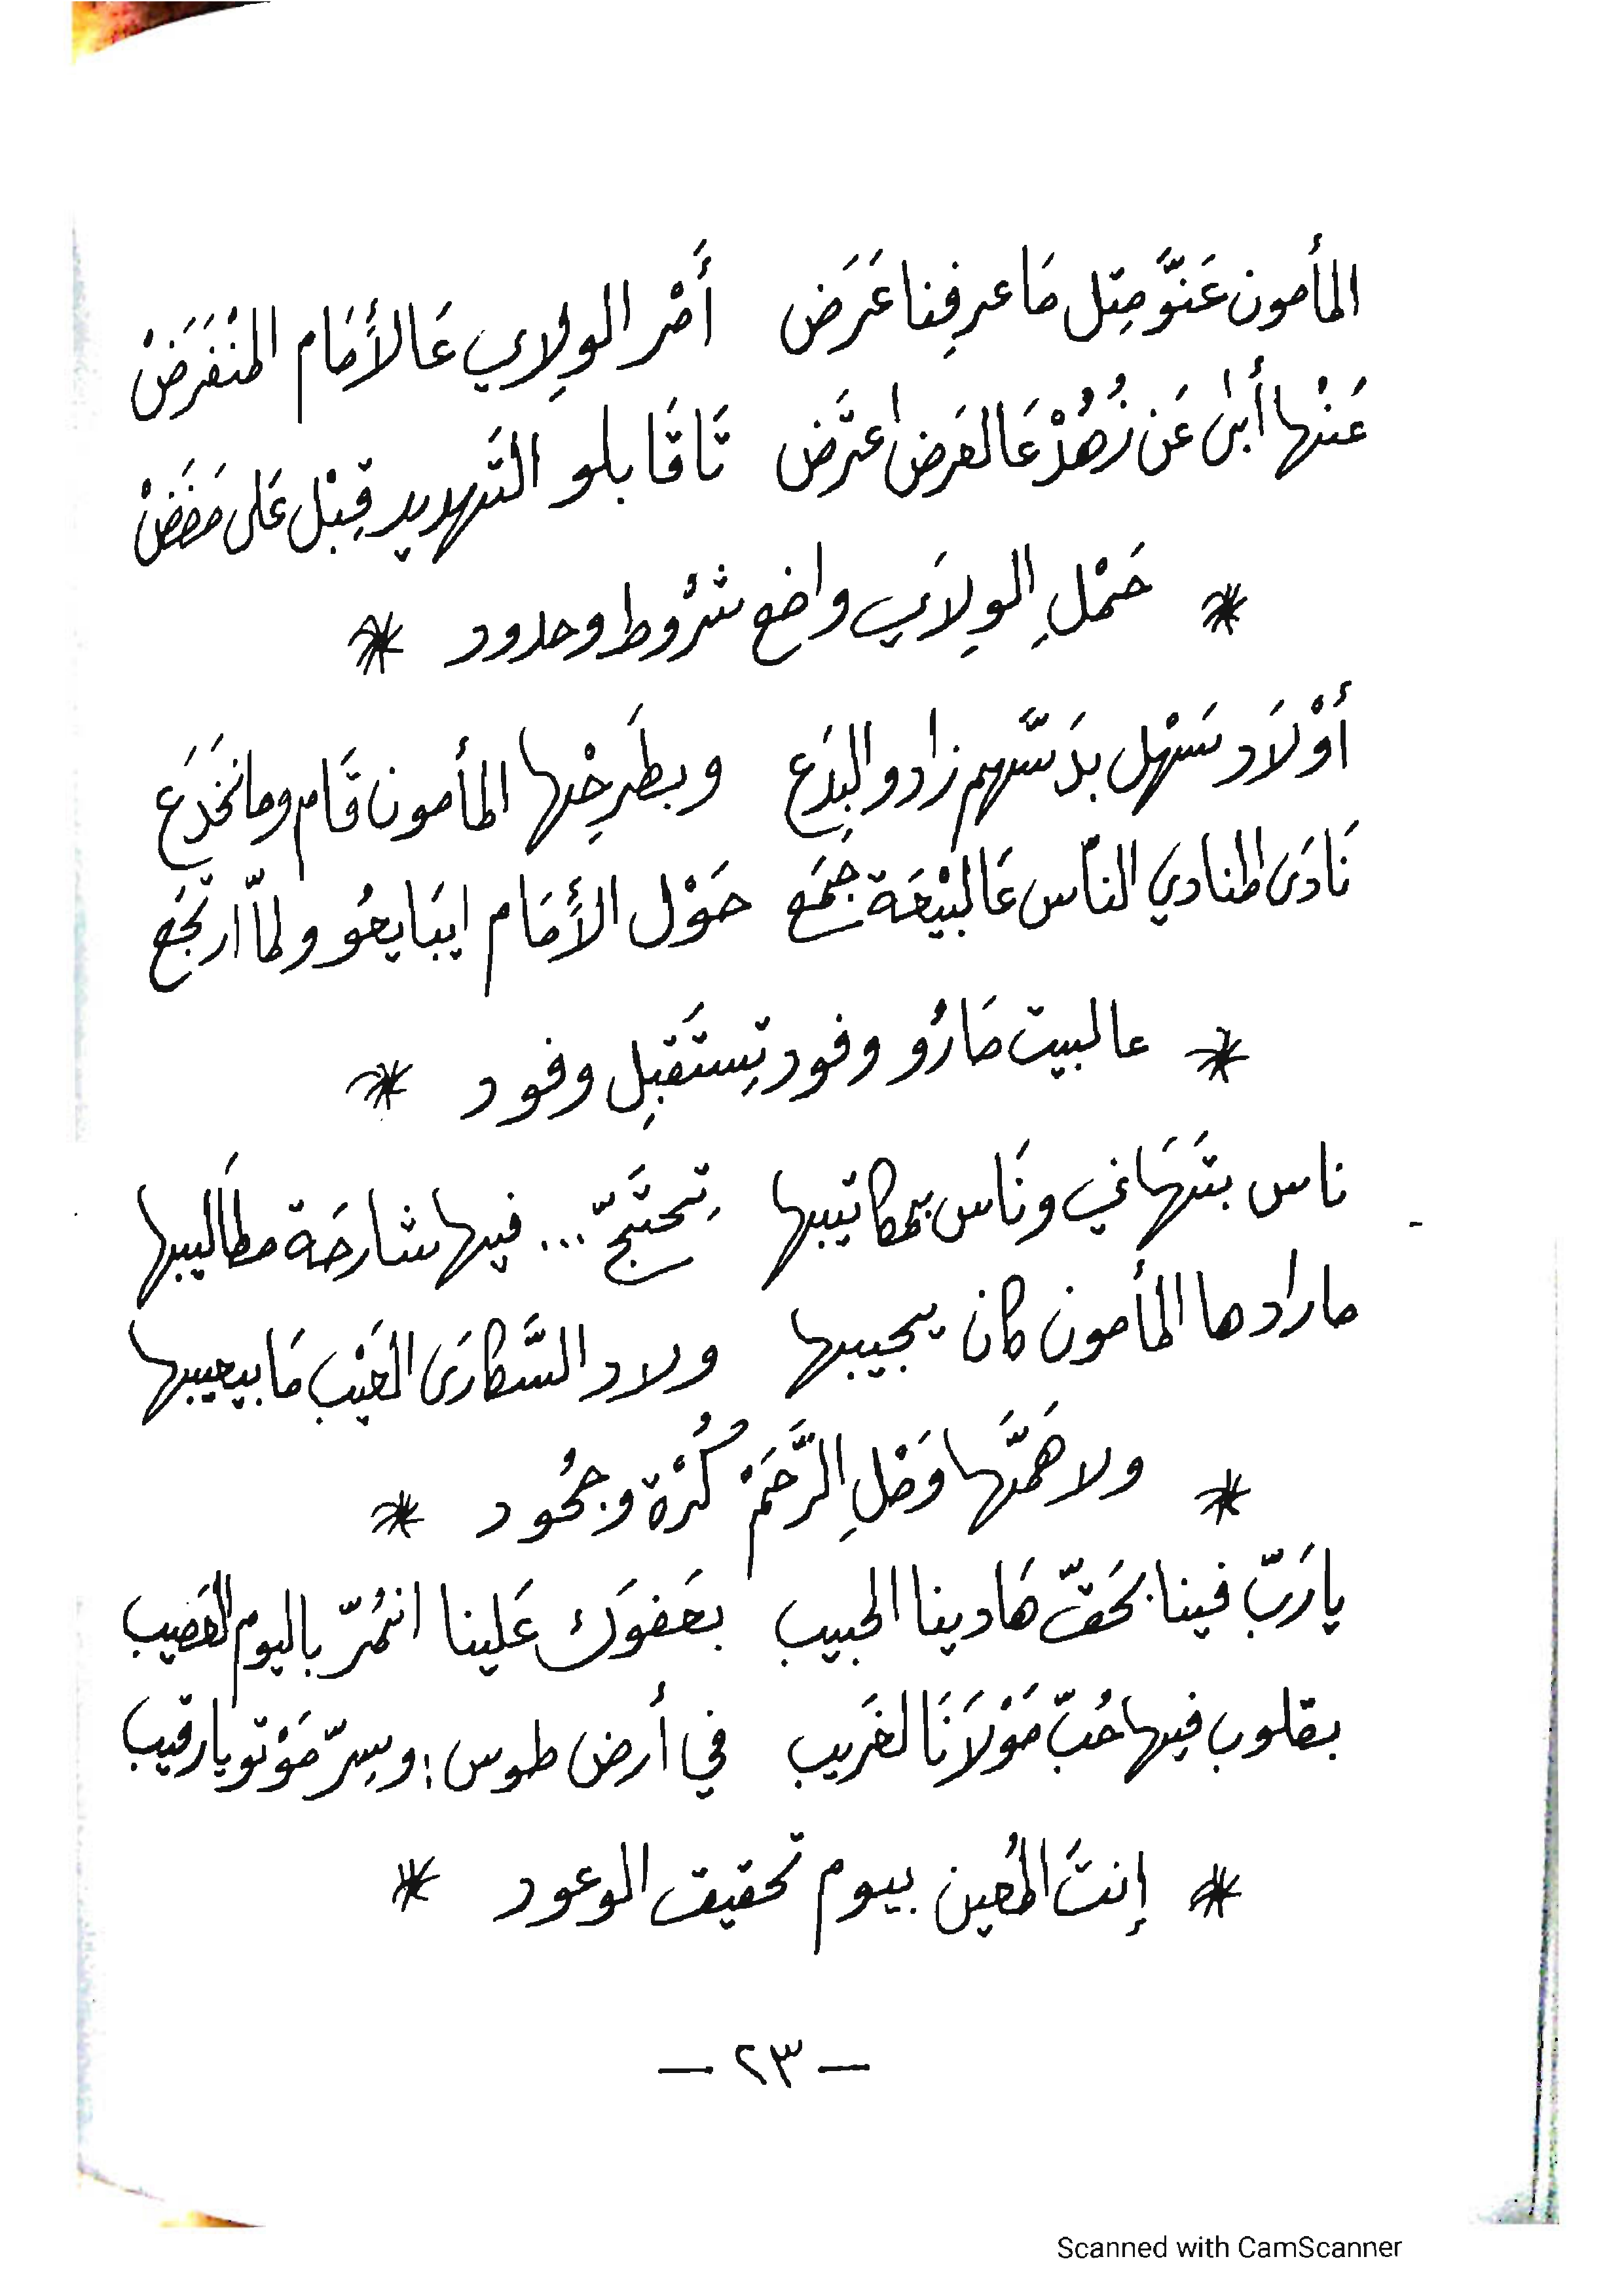 المأمون عَنّوَ مِتِل مَا عرفِنا عَرَض أَمْر الولِاي عَا الأَمَام المنْفَرَضْ
عَنْها أبىٰ عَن زُهُدْ عَا لعَرض اعتَرَض تَا قَابلو التَهديد قِبْل عَلى مَضَضْ
* حَمْلِ الوِلاَي واضع شرُوط وحدود *
أوْلاَد سَهْل بدَسَّهم زادو البِدَع وبطَرحْها المأمون قَام وما نخَدَع
نَادَى المنادي النَاس عَا لبَيْعَة جَمَع حَوْل الأَمَام ايبَايعُو ولمّا ارتجَع
* عا لبيت صَارُو وفود تِستَقبِل وفود *
ناس بتَهَاني ونَاس بمكاتيبها تِحتَجّ... فيها شارحَة مطَاليبها
ما رادها المأمون كان يجيبها ولاد السَّكارَى العَيْب مَا بيعيبها
* ولا هَمَّها وَصْلِ الرَّحَمْ كُرْة وجحُود *
يا رَبّ فينا بحَقّ هَادينا الحبيب بعَفوَك عَلينا انمُرّ باليوم العَصيب
بقلوب فيها حُبّ مَوْلاَنَا لغَريب في أرض طوس؛ وسِرّ مَوْتو يا رقيب
* إنتَ المُعين بيوم تحقيق الوعود *
— ٢٣ —
Scanned with CamScanner